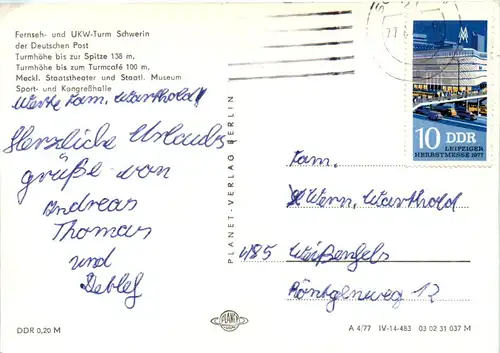 Fernseh- und UKW-Turm Schwerin
der Deutschen Post
Turmhöhe bis zur Spitze 138 m,
Turmhöhe bis zum Turmcafé 100 m,
Meckl. Staatstheater und Staatl. Museum
Sport- und Kongreßhalle
Werte Fam. Warthold!
Herzliche Urlaubs
grüße von
Andreas
Thomas
und
Detlef
PLANET-VERLAG BERLIN
10 DDR
LEIPZIGER
HERBSTMESSE 1977
Fam.
Wern. Warthold
485 Weißenfels
Röntgenweg 12
DDR 0,20 M
PLANET
A 4/77 IV-14-483 03 02 31 037 M